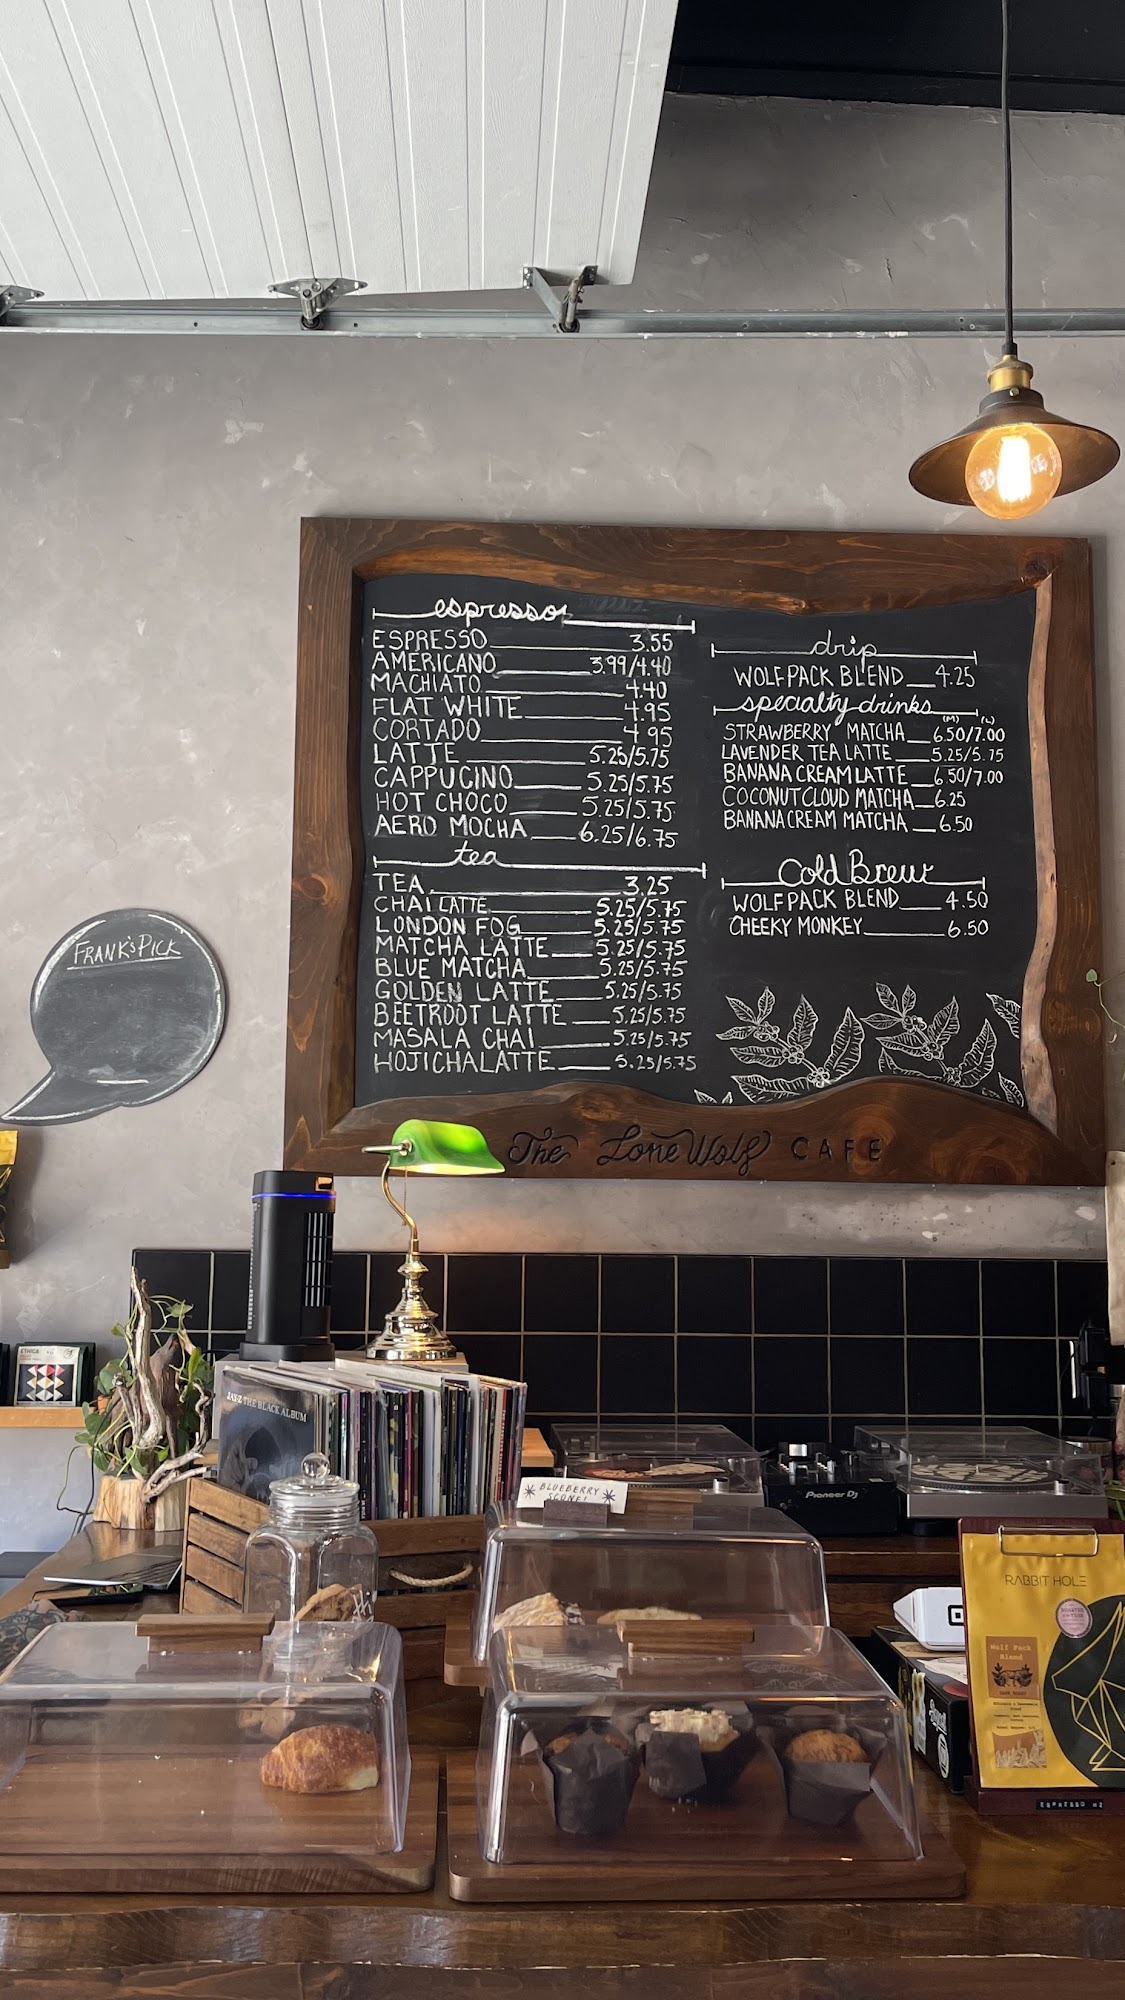 espresso
ESPRESSO 3.55
AMERICANO 3.99/4.40
MACHIATO 4.40
FLAT WHITE 4.95
CORTADO 4.95
LATTE 5.25/5.75
CAPPUCINO 5.25/5.75
HOT CHOCO 5.25/5.75
AERO MOCHA 6.25/6.75
tea
TEA 3.25
CHAI LATTE 5.25/5.75
LONDON FOG 5.25/5.75
MATCHA LATTE 5.25/5.75
BLUE MATCHA 5.25/5.75
GOLDEN LATTE 5.25/5.75
BEETROOT LATTE 5.25/5.75
MASALA CHAI 5.25/5.75
HOJICHA LATTE 5.25/5.75
drip
WOLFPACK BLEND 4.25
specialty drinks
(M) (L)
STRAWBERRY MATCHA 6.50/7.00
LAVENDER TEA LATTE 5.25/5.75
BANANA CREAM LATTE 6.50/7.00
COCONUT CLOUD MATCHA 6.25
BANANA CREAM MATCHA 6.50
Cold Brew
WOLFPACK BLEND 4.50
CHEEKY MONKEY 6.50
FRANK'S PICK
The Lone Wolf CAFE
ETHICA
JAY-Z THE BLACK ALBUM
BLUEBERRY
SCONE!
Pioneer Dj
RABBIT HOLE
Wolf Pack
Blend
ESPRESSO #2